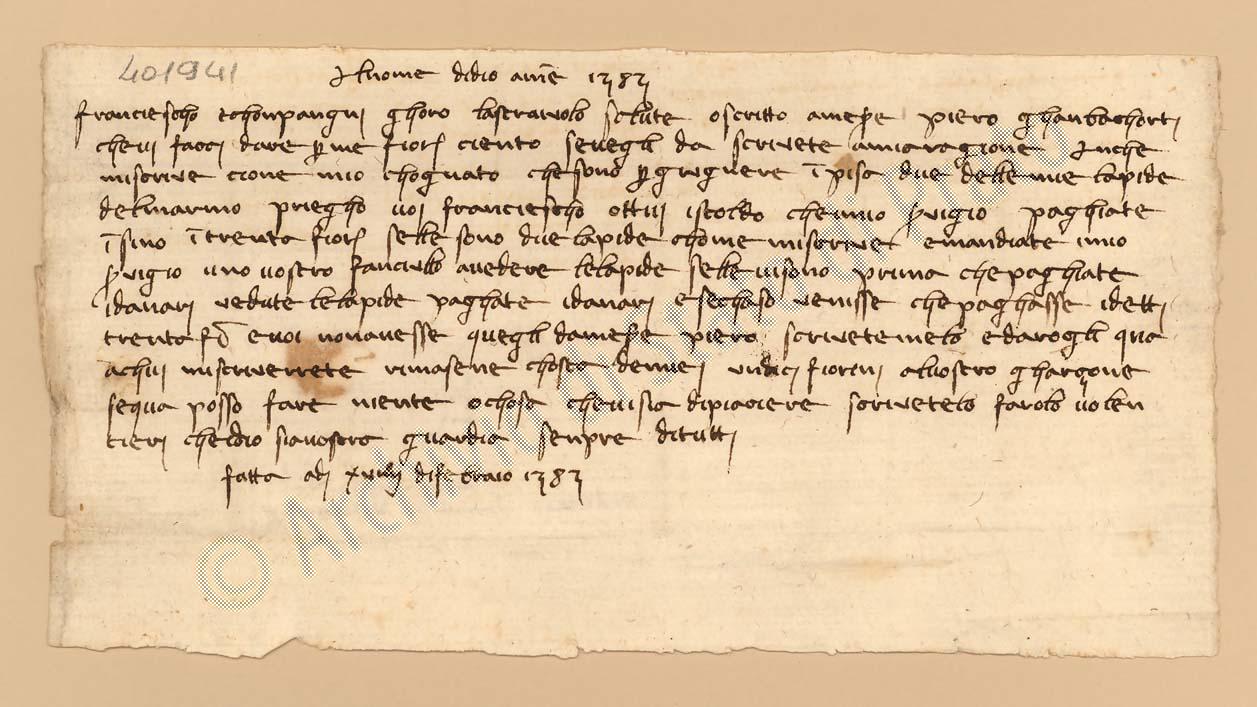 401941
Al nome di dio amē 1383
franciescho e chonpangni ghoro lastraiuolo salute o scritto a mess̄e piero ghanbachorti
che vi facci dare p me fiorī ciento se ve gli da scrivete a mia ragione Anche
mi scrive cione mio chogniato che sono p giugnere ī pisa due delle mie lapide
del marmo priegho voi franciescho o ttui iscoldo che in mio svigio paghiate
īsino ī trenta fiorī se lle sono due lapide chome mi scrive e mandiate i mio
svigio uno vostro fanciullo a vedere le lapide se lle vi sono prima che paghiate
i danari vedute le lapide paghate i danari e se chaso venisse che paghasse i detti
trenta fī e voi non avesse quegli da mess̄e piero scrivetemelo e darogli qua
a chui mi scriverrete rimasene chosta de miei undici fiorini al vostro gharzone
se qua posso fare niente o chosa che vi sia di piaciere scrivetelo farolo volen
tieri che idio sia vostra guardia senpre di tutti
fatta adi xviiij di febraio 1383
© Archivio di Stato di Prato